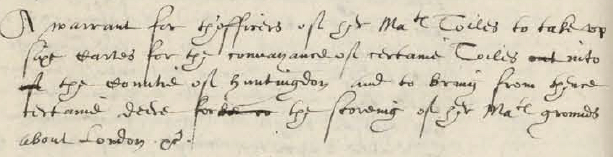 A warrant for th'officers of her Ma^tes Toiles to take up
sixe Cartes for the convayance of certaine Toiles out into
the Countie of Huntingdon and to bring from thence
certaine deere for the storeing of her Ma^tes grounds
about London &c.